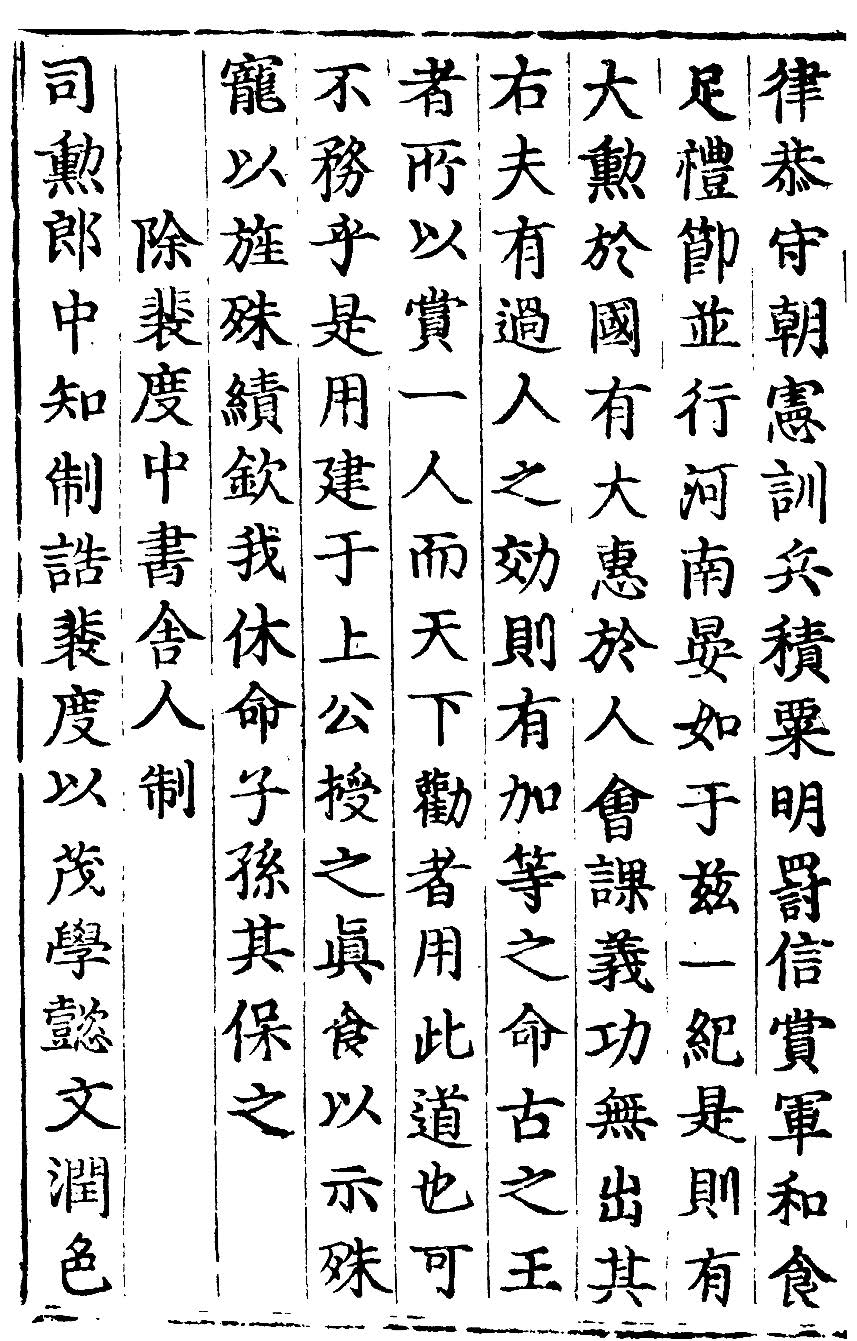 律恭守朝憲訓兵積粟明罸信賞軍和食
足禮節並行河南晏如于兹一紀是則有
大勲於國有大惠於人會課義功無出其
右夫有過人之効則有加等之命古之王
者所以賞一人而天下勸者用此道也可
不務乎是用建于上公授之眞食以示殊
寵以旌殊績欽我休命子孫其保之
除裴度中書舎人制
司勲郎中知制誥裴度以茂學懿文潤色